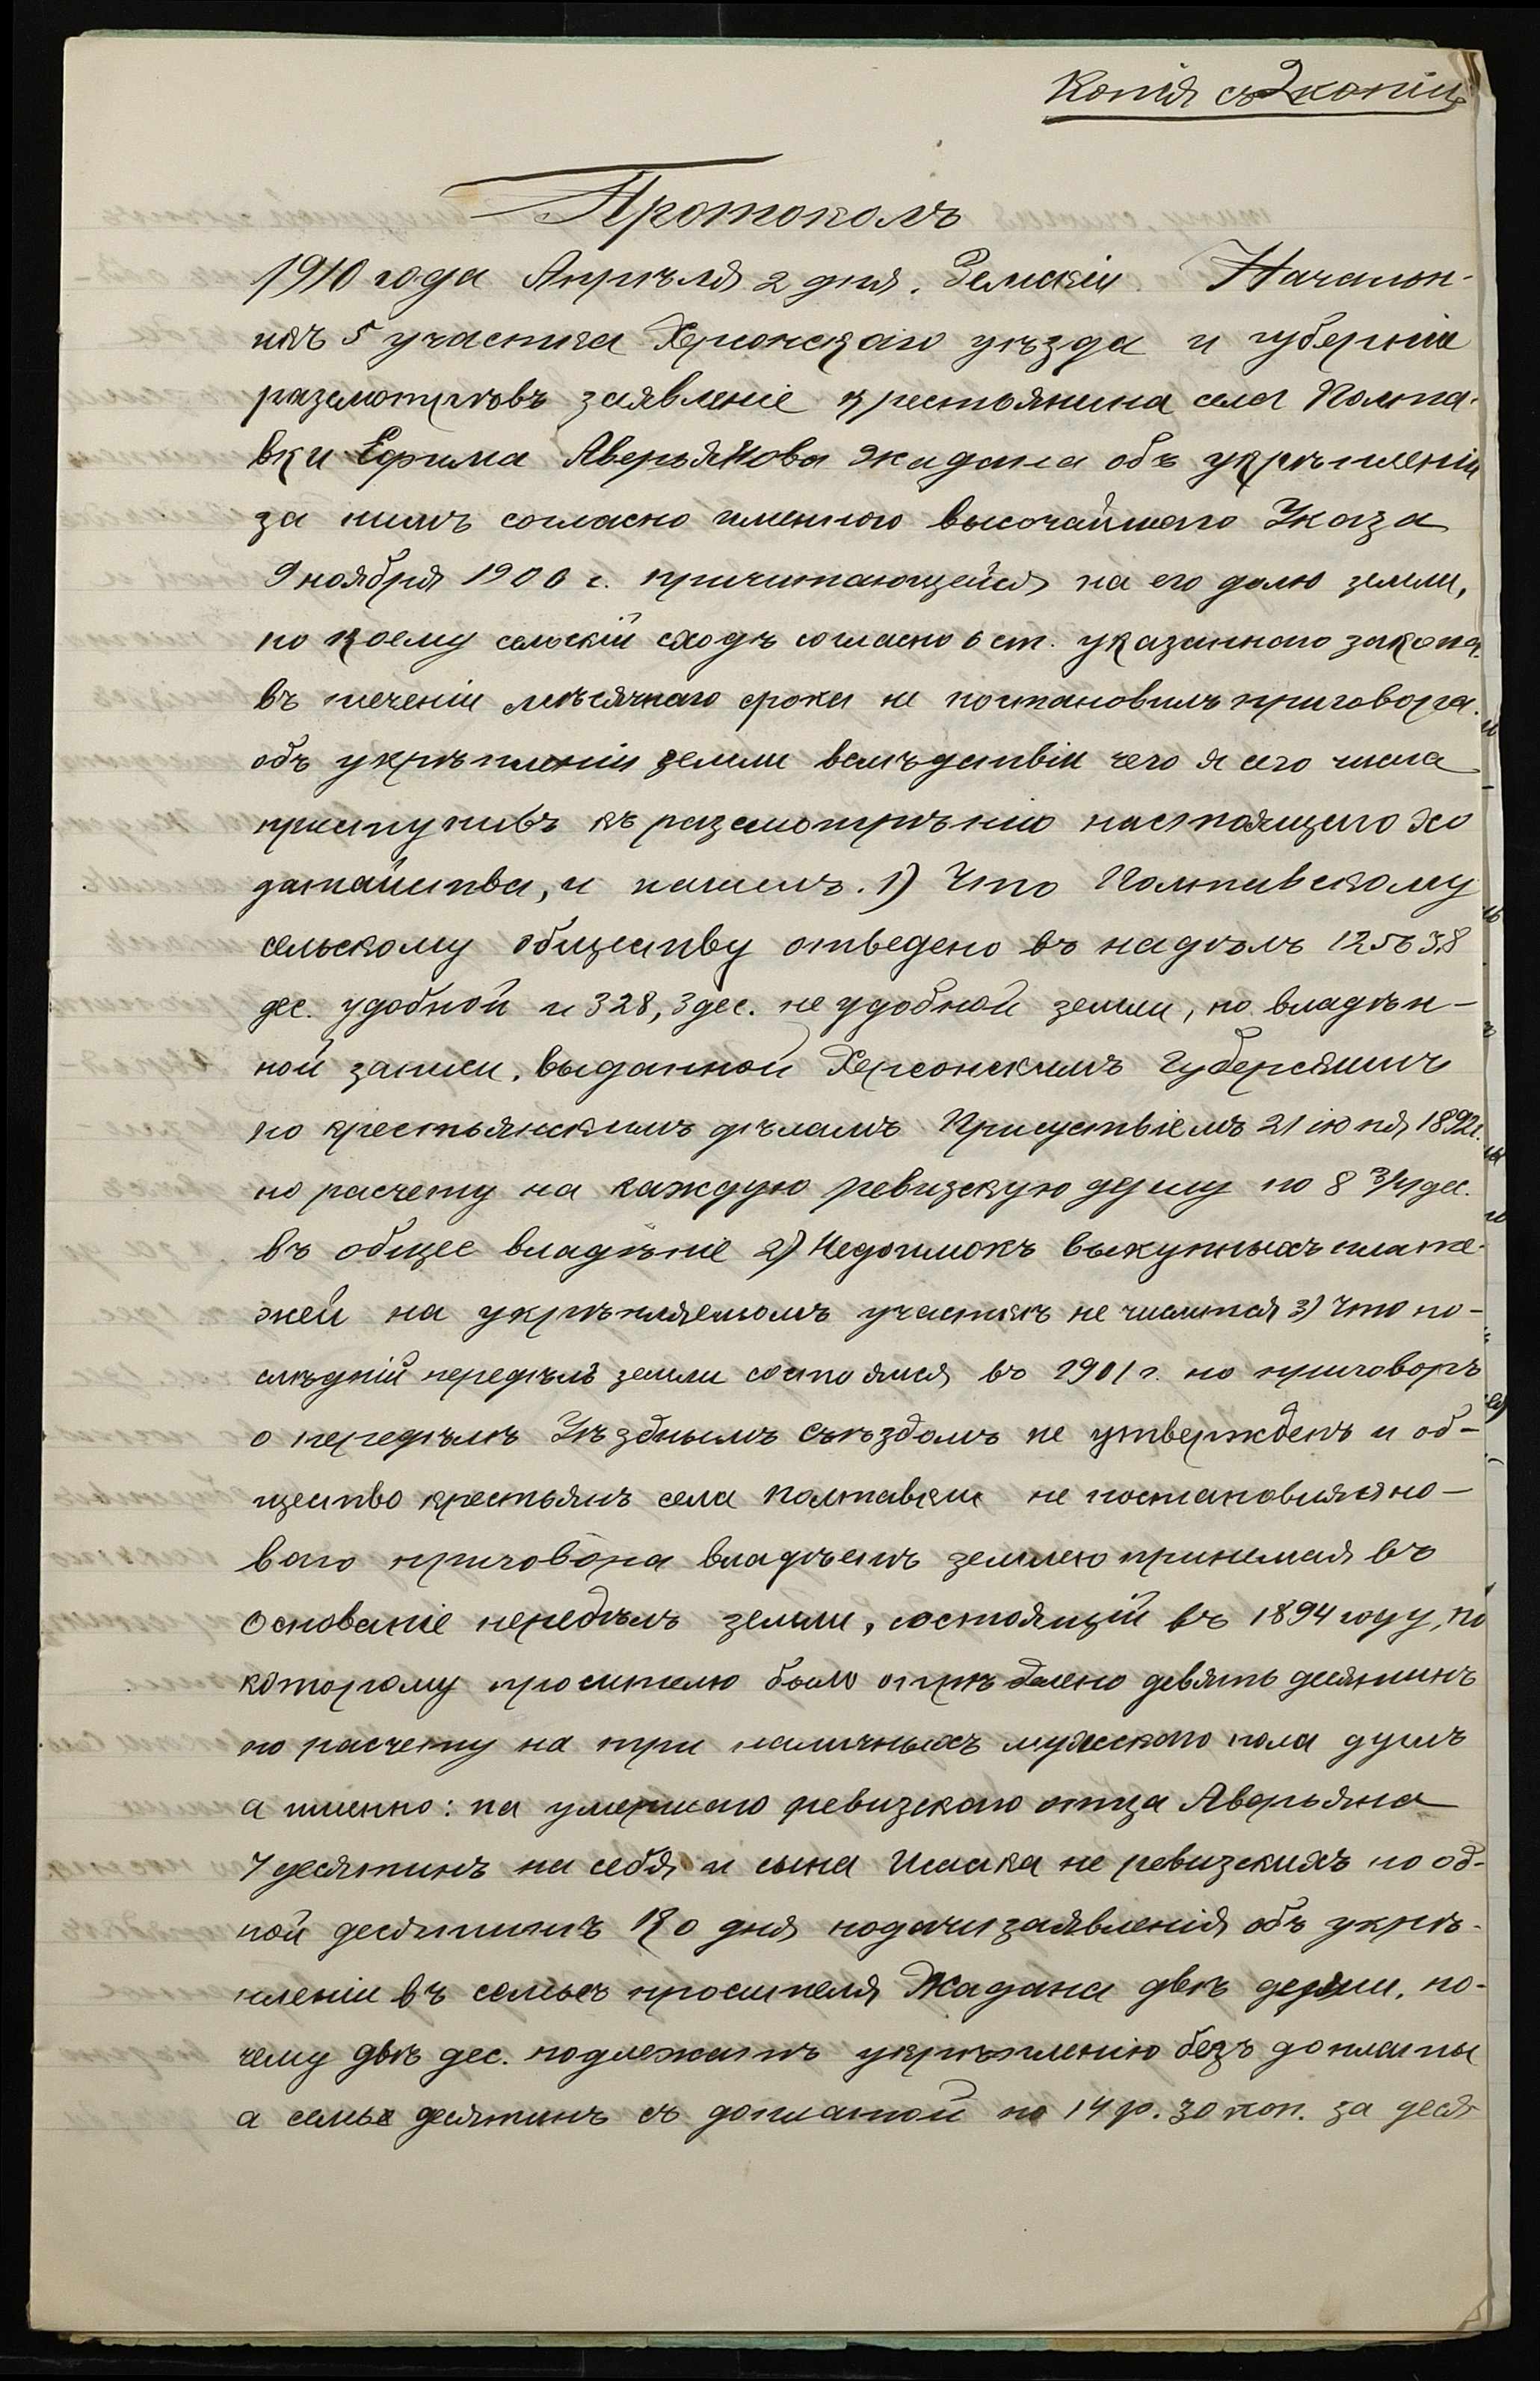 Копія съ копіи
2
Протоколъ
1910 года Апрѣля 2 дня. Земскій Началь-
никъ 5 участка Херсонскаго уѣзда и губерніи
разсмотрѣвъ заявленіе крестьянина села Полта-
вки Ефима Аверьянова Жадана объ укрѣпленіи
за нимъ согласно именного высочайшаго Указа
9 ноября 1906 г. причитающейся на его долю земли,
по коему сельскій сходъ согласно 6 ст. указаннаго закона
въ теченіи мѣсячнаго срока не постановилъ приговора
объ укрѣпленіи земли вслѣдствіи чего я сего числа
приступивъ къ разсмотрѣнію настоящаго хо
датайства, и нашелъ. 1) Что Полтавскому
сельскому обществу отведено въ надѣлъ 125638
дес. удобной и 328,3 дес. не удобной земли, по владѣн-
ной записи. выданной Херсонскимъ Губерскимъ
по крестьянскимъ дѣламъ Присуствіемъ 21 іюня 1892 г.
по расчету на каждую ревизскую душу по 8 3/4 дес.
въ общее владѣніе 2) Недоимокъ выкупныхъ плате-
жей на укрѣпляемомъ участкѣ не числится 3) Что по-
слѣдній передѣлъ земли состоялся въ 1901 г. но приговоръ
о передѣлѣ Уѣзднымъ Съѣздомъ не утвержденъ и об-
щество крестьянъ села Полтавки не постановляя но-
ваго приговора владѣетъ землею принимая въ
основаніе передѣлъ земли, состоящій въ 1894 году, по
которому просителю было опредѣлено девять десятинъ
по расчету на три наличныхъ мужского пола душъ
а именно: на умершаго ревизскаго отца Аверьяна
7 десятинъ на себя и сына Исаака не ревизскихъ по од-
ной десятинѣ Ко дня подачи заявленія объ укрѣ-
пленіи въ семьѣ просителя Жадана двѣ души, по-
чему двѣ дес. подлежатъ укрѣпленію безъ доплаты
а семь десятинъ съ доплатой по 14 р. 30 коп. за деся